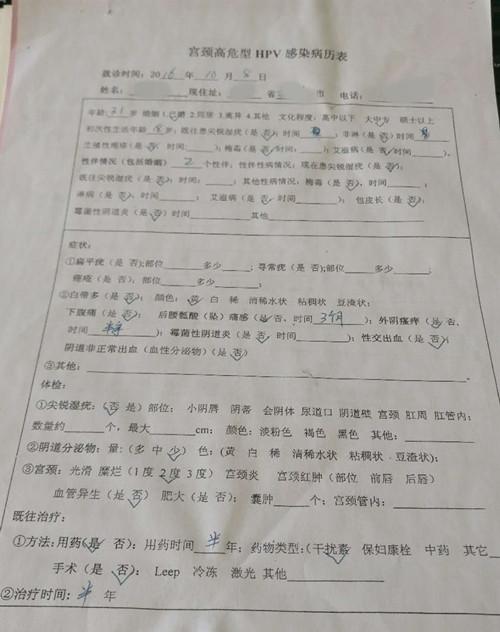 宫颈高危型 HPV 感染病历表
就诊时间：2016 年 10 月 8 日
姓名： 现住址： 省 市 电话：
年龄：21 岁 婚姻 1.已婚 2.同居 3.离异 4.其他 文化程度：高中以下 大中专 硕士以上
初次性生活年龄 岁；既往患尖锐湿疣（是 否）时间 ；非淋（是 否）时间
生殖性疱疹（是 否） 时间 ）；梅毒（是 否，时间 ）；艾滋病（是 否 时间 ），
性伴情况（包括婚姻） 2 个性伴，性伴性病情况：现在患尖锐湿疣（是 否）；
既往尖锐湿疣（是 否），时间： ；其他性病情况：梅毒（是 否），时间 ；
淋病（是 否），时间 ； 艾滋病（是 否 时间 ）； 包皮长（是 否）；
霉菌性阴道炎（是 否）时间 其他
症状：
①扁平疣（是 否）;部位 多少 ；寻常疣（是 否）;部位 多少 ；
瘙痒（是 否），部位 多少 ；
②白带多（是 否）； 颜色： 黄 白 稀 清稀水状 粘稠状 豆渣状；
下腹痛（是 否）； 后腰骶酸（坠）痛感（是 否、时间 3个月 ）；外阴瘙痒（是 否、
时间 半年 ）；霉菌性阴道炎（是 否，时间 ）；性交出血（是 否）；
阴道非正常出血（血性分泌物）（是 否）
③其他：
体检：
①尖锐湿疣：（否 是）部位： 小阴唇 阴蒂 会阴体 尿道口 阴道壁 宫颈 肛周 肛管内；
数量约 个，最大 cm； 颜色：淡粉色 褐色 黑色 其他：
②阴道分泌物：量：（多 中 少） 色：（黄 白 稀 清稀水状 粘稠状 豆渣状）；
③宫颈：光滑 糜烂（1 度 2 度 3 度） 宫颈炎 宫颈红肿（部位 前唇 后唇）
血管异生（是 否） 肥大（是 否）； 囊肿 个；宫颈管内：
既往治疗：
①方法：用药（是 否）：用药时间 半 年；药物类型：（干扰素 保妇康栓 中药 其它
手术（是 否）： Leep 冷冻 激光 其他
②治疗时间： 半 年